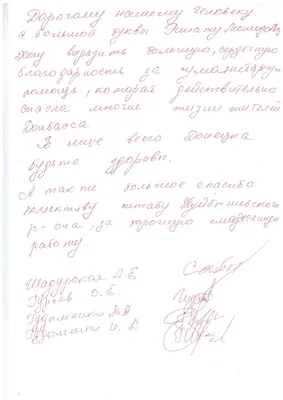 Дорогому нашему Человеку
с большой буквы Ринату Леонидов
Хочу выразить большую, сердечную
благодарность за гуманитарну
помощь, которая действительно
спасла многие жизни жителей
Донбасса.
В лице всего Донецка
будьте здоровы.
А так же большое спасибо
коллективу штабу Куйбышевского
р-она, за хорошую слаженную
работу.
Шадурская Л Б
Гуреев О. Б.
Гудыменко
Гудыменко И. А.